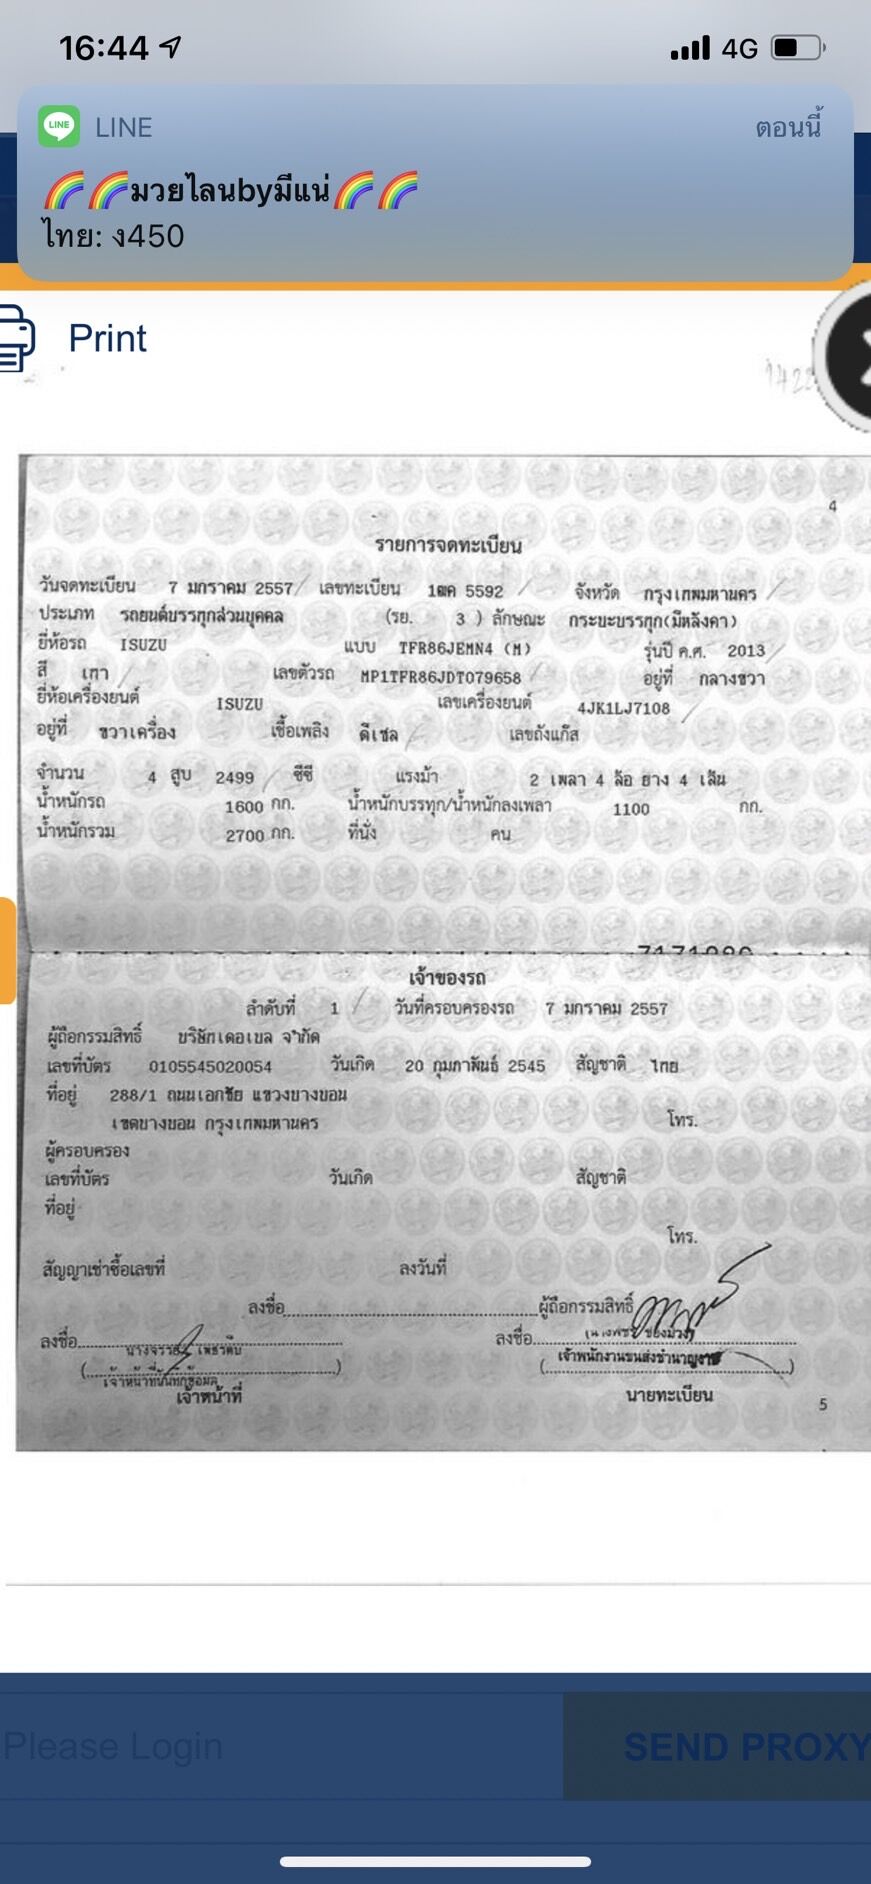 16:44
4G
LINE
ตอนนี้
🌈🌈มวยไลนbyมีแน่🌈🌈
ไทย: ง450
Print
1422
4
รายการจดทะเบียน
วันจดทะเบียน 7 มกราคม 2557 เลขทะเบียน 1ฒค 5592 จังหวัด กรุงเทพมหานคร
ประเภท รถยนต์บรรทุกส่วนบุคคล (รย. 3 ) ลักษณะ กระบะบรรทุก(มีหลังคา)
ยี่ห้อรถ ISUZU แบบ TFR86JEMN4 (M) รุ่นปี ค.ศ. 2013
สี เทา เลขตัวรถ MP1TFR86JDT079658 อยู่ที่ กลางขวา
ยี่ห้อเครื่องยนต์ ISUZU เลขเครื่องยนต์ 4JK1LJ7108
อยู่ที่ ขวาเครื่อง เชื้อเพลิง ดีเซล เลขถังแก๊ส
จำนวน 4 สูบ 2499 ซีซี แรงม้า 2 เพลา 4 ล้อ ยาง 4 เส้น
น้ำหนักรถ 1600 กก. น้ำหนักบรรทุก/น้ำหนักลงเพลา 1100 กก.
น้ำหนักรวม 2700 กก. ที่นั่ง คน
เจ้าของรถ
ลำดับที่ 1 วันที่ครอบครองรถ 7 มกราคม 2557
ผู้ถือกรรมสิทธิ์ บริษัทเดอเบล จำกัด
เลขที่บัตร 0105545020054 วันเกิด 20 กุมภาพันธ์ 2545 สัญชาติ ไทย
ที่อยู่ 288/1 ถนนเอกชัย แขวงบางบอน
เขตบางบอน กรุงเทพมหานคร โทร.
ผู้ครอบครอง
เลขที่บัตร วันเกิด สัญชาติ
ที่อยู่
โทร.
สัญญาเช่าซื้อเลขที่ ลงวันที่
ลงชื่อ ผู้ถือกรรมสิทธิ์
ลงชื่อ ลงชื่อ
เจ้าพนักงานขนส่งชำนาญงาน
เจ้าหน้าที่บันทึกข้อมูล
เจ้าหน้าที่ นายทะเบียน
5
Please Login
SEND PROXY